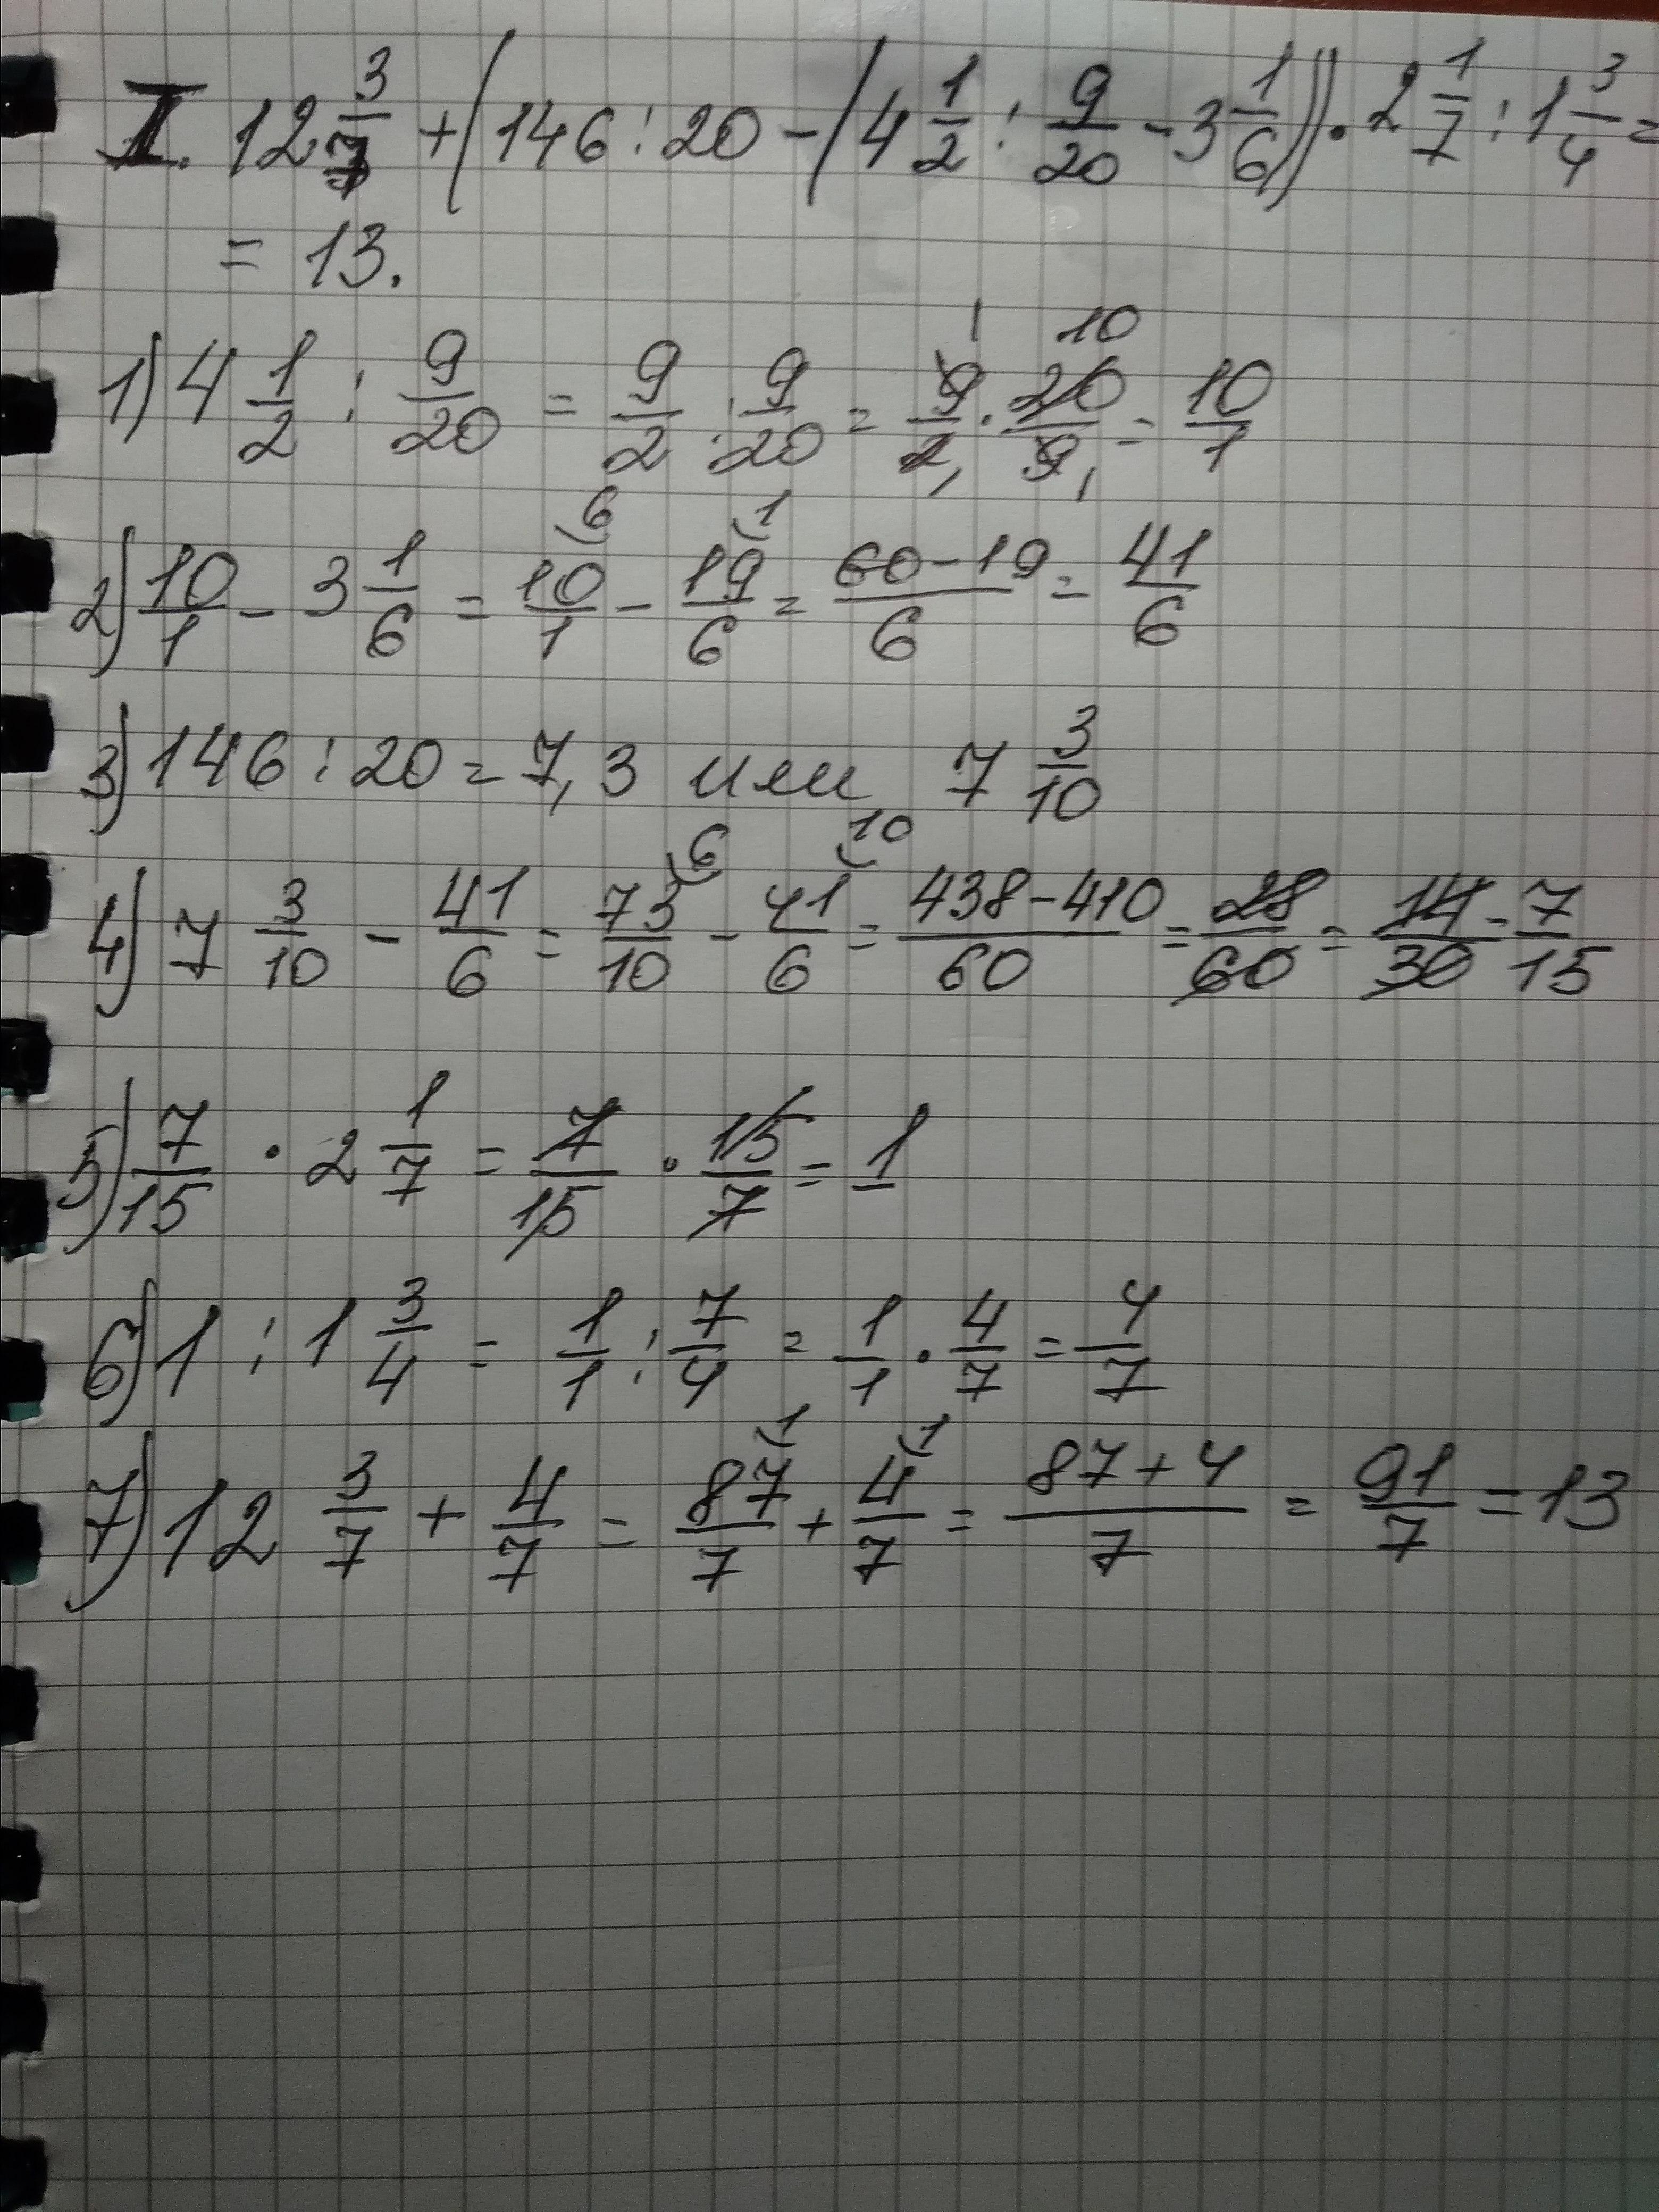 I. 12 3/7 + (146 : 20 - (4 1/2 : 9/20 - 3 1/6)) · 2 1/7 : 1 3/4 =
= 13.
1) 4 1/2 : 9/20 = 9/2 : 9/20 = 9/2 · 20/9 = 10/1
2) 10/1 - 3 1/6 = 10/1 - 19/6 = 60-19/6 = 41/6
3) 146 : 20 = 7,3 или 7 3/10
4) 7 3/10 - 41/6 = 73/10 - 41/6 = 438-410/60 = 28/60 = 14/30 = 7/15
5) 7/15 · 2 1/7 = 7/15 · 15/7 = 1
6) 1 : 1 3/4 = 1/1 : 7/4 = 1/1 · 4/7 = 4/7
7) 12 3/7 + 4/7 = 87/7 + 4/7 = 87+4/7 = 91/7 = 13